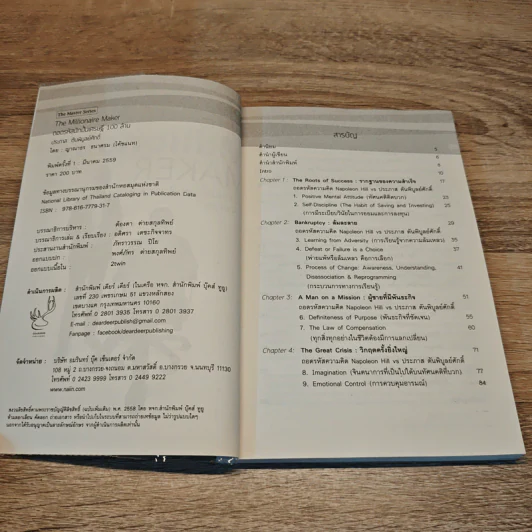 The Master Series
The Millionaire Maker
ถอดรหัสนักปั้นเศรษฐี 100 ล้าน
ประภาส ตันพิบูลย์ศักดิ์
โดย : ญาณาธร ธนาธรม (โค้ชแนท)
พิมพ์ครั้งที่ 1 : มีนาคม 2559
ราคา 200 บาท
ข้อมูลทางบรรณานุกรมของสำนักหอสมุดแห่งชาติ
National Library of Thailand Cataloging in Publication Data
ISBN : 978-616-7779-31-7
บรรณาธิการบริหาร : ต้องตา
บรรณาธิการเล่ม & เรียบเรียง :
ประสานงานสำนักพิมพ์ :
ออกแบบปก :
ออกแบบเนื้อใน : 2twin
ดำเนินการผลิต : สำนักพิมพ์ เดียร์ เดียร์ (ในเครือ หจก. สำนักพิมพ์ บุ๊คส์ ยูยู)
เลขที่ 230 เพชรเกษม 61 แขวงหลักสอง
เขตบางแค กรุงเทพมหานคร 10160
โทรศัพท์ 0 2805 3936 โทรสาร 0 2801 3937
E-mail : deardeerpublishing@gmail.com
Fanpage : facebook/deardeerpublishing
จัดจำหน่าย : บริษัท อมรินทร์ บุ๊ค เซ็นเตอร์ จำกัด
108 หมู่ 2 ถ.บางกรวย-จงถนอม ต.มหาสวัสดิ์ อ.บางกรวย จ.นนทบุรี 11130
โทรศัพท์ 0 2423 9999 โทรสาร 0 2449 9222
www.naiin.com
สารบัญ
คำนิยม
คำนำผู้เขียน
คำนำสำนักพิมพ์
Chapter 1 : The Roots of Success : รากฐานของความสำเร็จ
ถอดรหัสความคิด Napoleon Hill vs ประภาส ตันพิบูลย์ศักดิ์
1. Positive Mental Attitude (ทัศนคติคิดบวก)
2. Self-Discipline (The Habit of Saving and Investing) 25
(การมีระเบียบวินัยในการออมและการลงทุน)
Chapter 2: Bankruptcy : ล้มละลาย 29
ถอดรหัสความคิด Napoleon Hill vs ประภาส ตันพิบูลย์ศักดิ์
3. Learning from Adversity (การเรียนรู้จากความล้มเหลว) 33
4. Defeat or Failure is a Choice 37
(พ่ายแพ้หรือล้มเหลว คือการเลือก)
5. Process of Change: Awareness, Understanding, 41
Disassociation & Reprogramming
(กระบวนการทางการเรียนรู้)
Chapter 3: A Man on a Mission : ผู้ชายที่มีพันธะกิจ 51
ถอดรหัสความคิด Napoleon Hill vs ประภาส ตันพิบูลย์ศักดิ์
6. Definiteness of Purpose (พันธะกิจที่ชัดเจน) 55
7. The Law of Compensation 60
(ทุกสิ่งทุกอย่างในชีวิตต้องมีการแลกเปลี่ยน)
Chapter 4: The Great Crisis : วิกฤตครั้งยิ่งใหญ่ 71
ถอดรหัสความคิด Napoleon Hill vs ประภาส ตันพิบูลย์ศักดิ์
8. Imagination (จินตนาการที่เป็นไปได้บนทัศนคติที่บวก) 77
9. Emotional Control (การควบคุมอารมณ์) 84